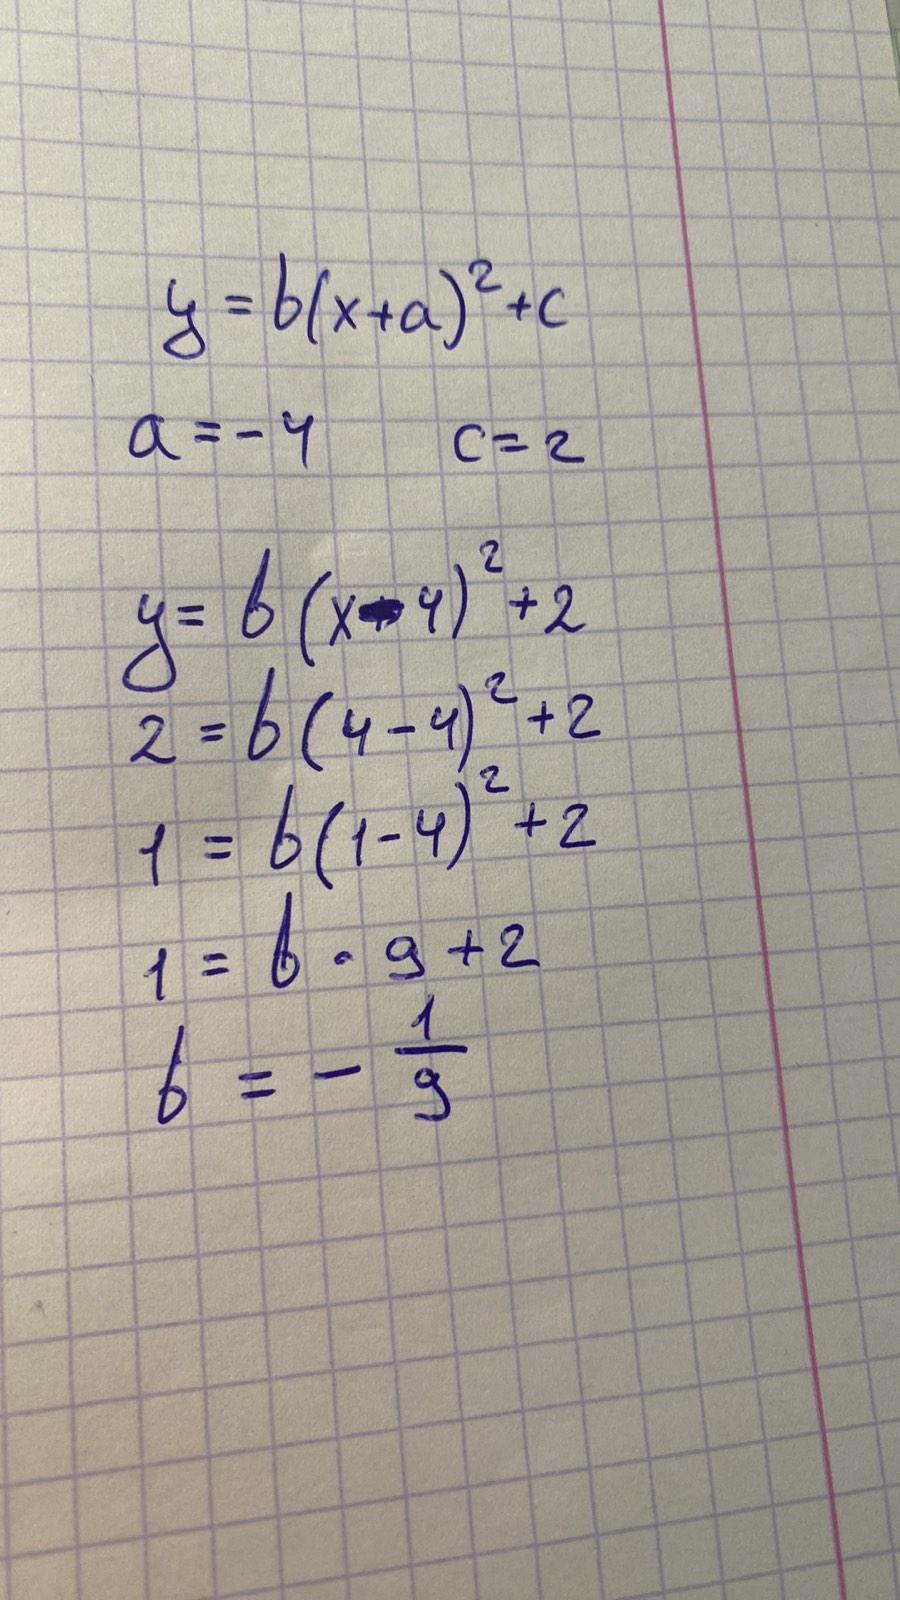 y = b(x+a)² + c
a = -4 c = 2
y = b(x-4)² + 2
2 = b(4-4)² + 2
1 = b(1-4)² + 2
1 = b · 9 + 2
b = - 1/9